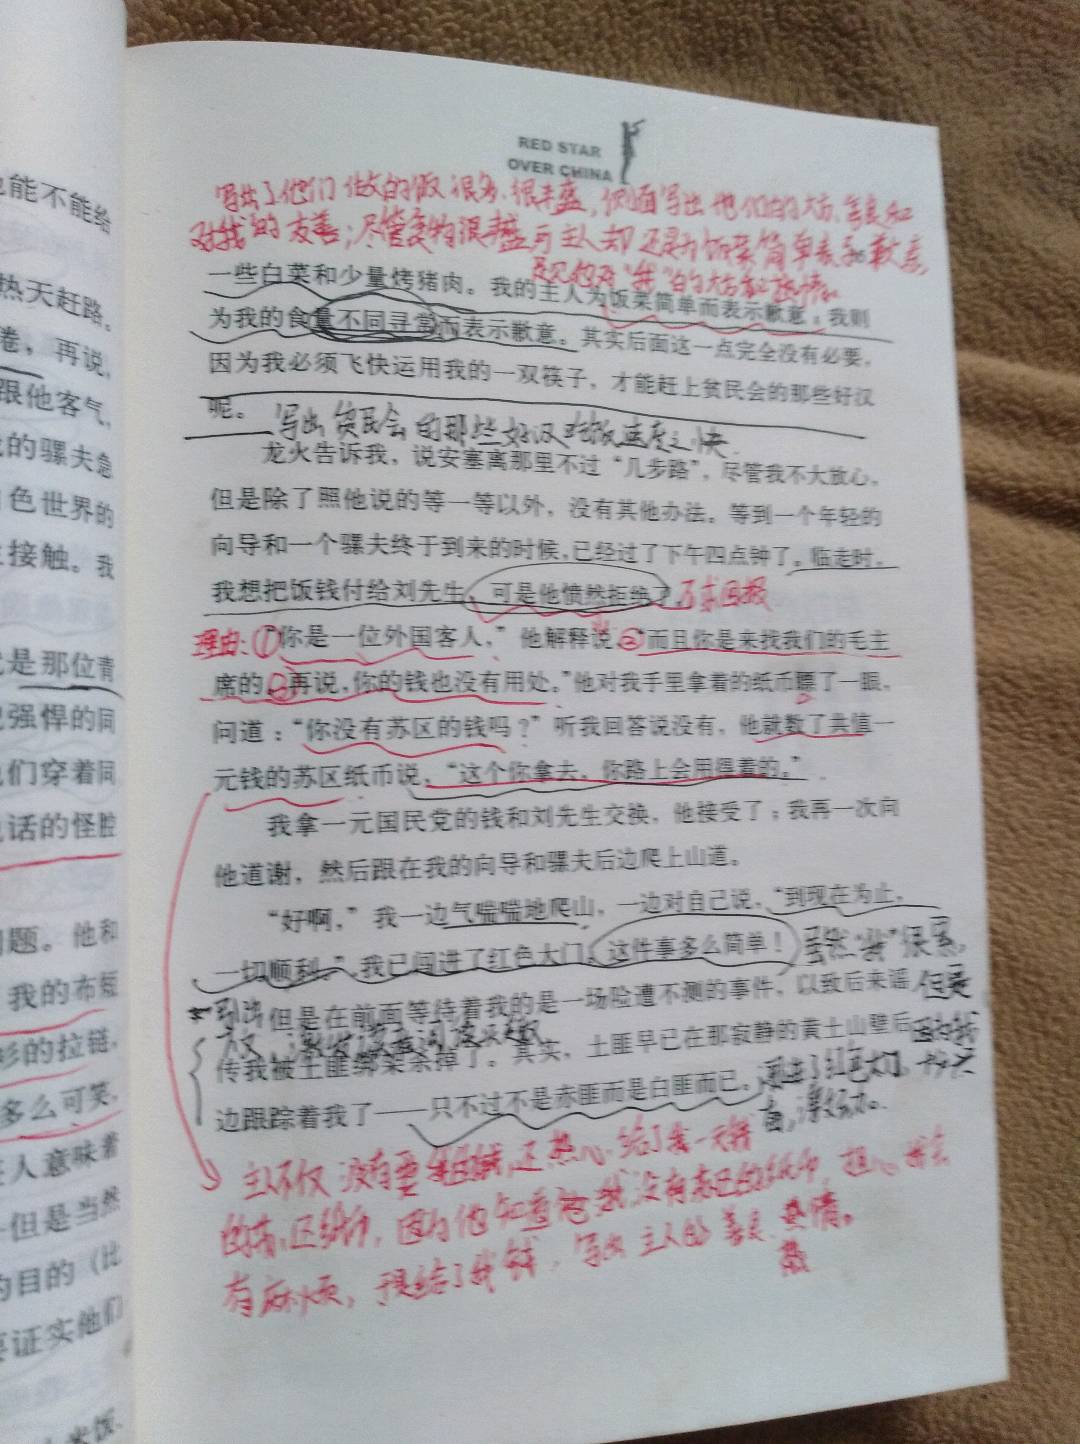 能不能给
热天赶路。
卷，再说，
跟他客气，
的骡夫急
色世界的
接触。我
是那位青
强悍的同
们穿着同
话的怪腔
问题。他和
我的布短
衫的拉链，
多么可笑，
人意味着
但是当然
的目的（比
要证实他们
米饭、
RED STAR
OVER CHINA
写出了他们做的饭很多，很丰盛，侧面写出他们的大方、善良和
对我的友善；尽管食物很丰盛可主人却还是为饭菜简单表示歉意，
足见他对“我”的大方和热情。
一些白菜和少量烤猪肉。我的主人为饭菜简单而表示歉意；我则
为我的食量不同寻常而表示歉意。其实后面这一点完全没有必要，
因为我必须飞快运用我的一双筷子，才能赶上贫民会的那些好汉
呢。
写出贫民会的那些好汉吃饭速度之快
龙火告诉我，说安塞离那里不过“几步路”，尽管我不大放心，
但是除了照他说的等一等以外，没有其他办法。等到一个年轻的
向导和一个骡夫终于到来的时候，已经过了下午四点钟了。临走时，
我想把饭钱付给刘先生，可是他愤然拒绝了。
不求回报
理由：①“你是一位外国客人，”他解释说，②“而且你是来找我们的毛主
席的。③再说，你的钱也没有用处。”他对我手里拿着的纸币瞟了一眼，
问道：“你没有苏区的钱吗？”听我回答说没有，他就数了共值一
元钱的苏区纸币说，“这个你拿去，你路上会用得着的。”
我拿一元国民党的钱和刘先生交换，他接受了；我再一次向
他道谢，然后跟在我的向导和骡夫后边爬上山道。
“好啊，”我一边气喘喘地爬山，一边对自己说，“到现在为止，
一切顺利。”我已闯进了红色大门。这件事多么简单！
虽然“我”很累，
但是
因为我
闯进了红色大门，十分兴
奋，
但是在前面等待着我的是一场险遭不测的事件，以致后来谣
引出
下文，
传我被土匪绑架杀掉了。其实，土匪早已在那寂静的黄土山壁后
边跟踪着我了——只不过不是赤匪而是白匪而已。
主人不仅没有要我的钱，还热心给了我一元钱
的苏区纸币，因为他知道我没有苏区的纸币，担心我会
有麻烦，于是给了我钱，写出主人的善良、热情。